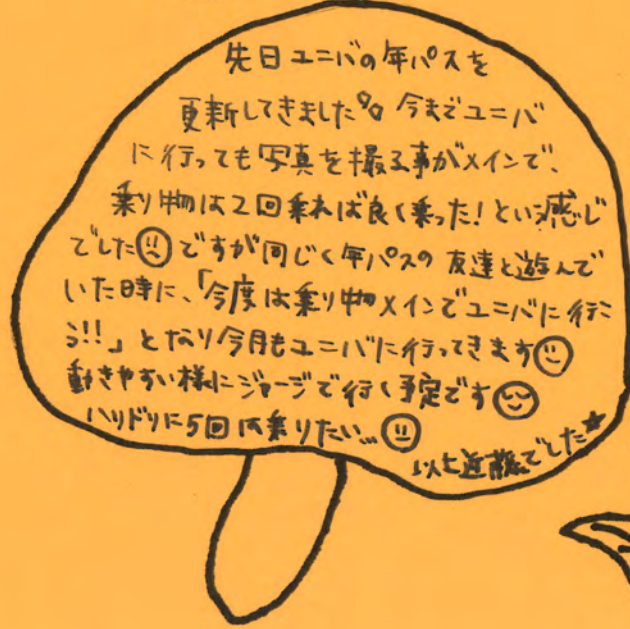 先日ユニバの年パスを
更新してきました 今までユニバ
に行っても写真を撮る事がメインで、
乗り物は2回乗れば良く乗った!という感じ
でした ですが同じく年パスの友達と遊んで
いた時に、「今度は乗り物メインでユニバに行こ
う!!」となり今月もユニバに行ってきます
動きやすい様にジャージで行く予定です
ハリドリに5回は乗りたい...
以上近況でした★